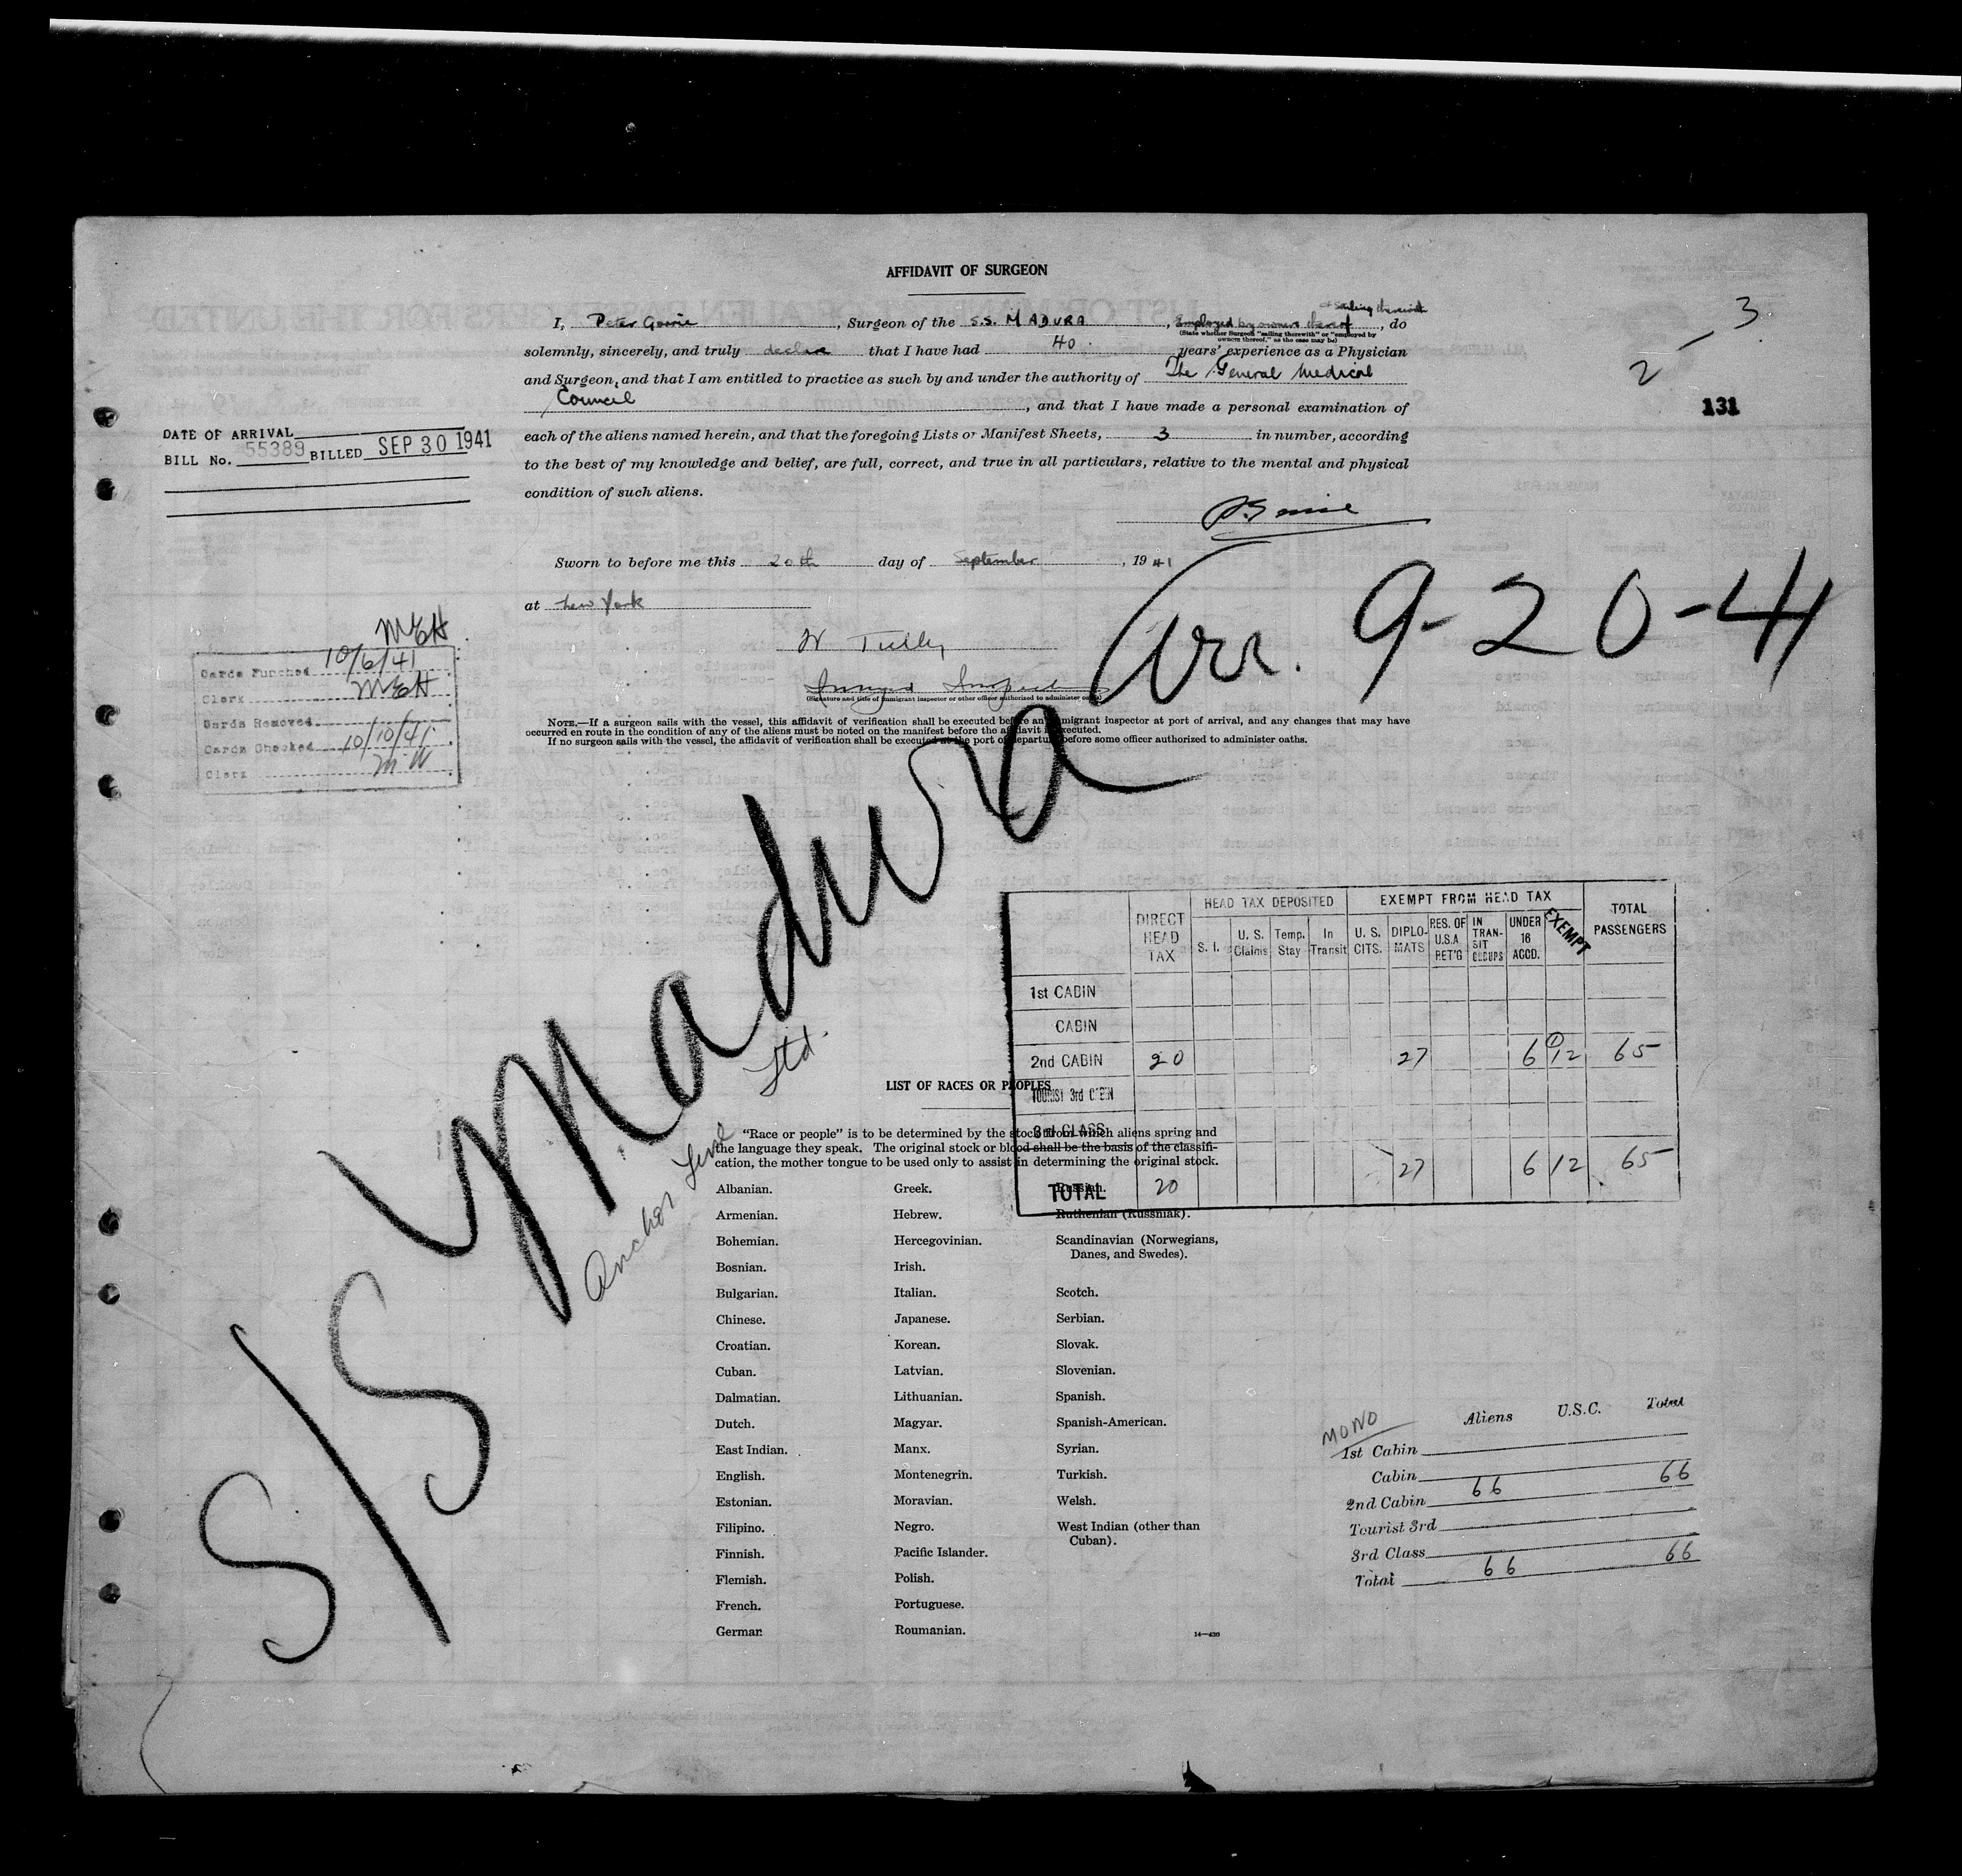 AFFIDAVIT OF SURGEON
& sailing therewith
I, Peter Gorrie, Surgeon of the S.S. MADURA, Employed by owners thereof, do
(State whether Surgeon "sailing therewith" or "employed by
owners thereof," as the case may be)
solemnly, sincerely, and truly declare that I have had 40 years' experience as a Physician
and Surgeon, and that I am entitled to practice as such by and under the authority of The General Medical
Council, and that I have made a personal examination of
each of the aliens named herein, and that the foregoing Lists or Manifest Sheets, 3 in number, according
to the best of my knowledge and belief, are full, correct, and true in all particulars, relative to the mental and physical
condition of such aliens.
Sworn to before me this 20th day of September, 1941
at New York
W Tully
Immgrd Inspect
(Signature and title of immigrant inspector or other officer authorized to administer oaths)
NOTE.—If a surgeon sails with the vessel, this affidavit of verification shall be executed before an immigrant inspector at port of arrival, and any changes that may have
occurred en route in the condition of any of the aliens must be noted on the manifest before the affidavit is executed.
If no surgeon sails with the vessel, the affidavit of verification shall be executed at the port of departure before some officer authorized to administer oaths.
2 – 3
131
DATE OF ARRIVAL
BILL No. 55389 BILLED SEP 30 1941
McH
Cards Punched 10/6/41
Clerk McH
Cards Removed
Cards Checked 10/10/41
Clerk M W
Arr. 9-20-41
S/S Madura
Anchor Line Ltd.
DIRECT HEAD TAX
HEAD TAX DEPOSITED
EXEMPT FROM HEAD TAX
TOTAL PASSENGERS
S. I. U. S. Claims Temp. Stay In Transit U. S. CITS. DIPLO-MATS RES. OF U.S.A RET'G IN TRAN-SIT GROUPS UNDER 16 ACCD. EXEMPT
1st CABIN
CABIN
2nd CABIN 20 27 6 12 65
TOURIST 3rd CABIN
3rd CLASS
TOTAL 20 27 6 12 65
LIST OF RACES OR PEOPLES
"Race or people" is to be determined by the stock from which aliens spring and
the language they speak. The original stock or blood shall be the basis of the classifi-
cation, the mother tongue to be used only to assist in determining the original stock.
Albanian. Greek. Russian.
Armenian. Hebrew. Ruthenian (Russniak).
Bohemian. Hercegovinian. Scandinavian (Norwegians,
Danes, and Swedes).
Bosnian. Irish.
Bulgarian. Italian. Scotch.
Chinese. Japanese. Serbian.
Croatian. Korean. Slovak.
Cuban. Latvian. Slovenian.
Dalmatian. Lithuanian. Spanish.
Dutch. Magyar. Spanish-American.
East Indian. Manx. Syrian.
English. Montenegrin. Turkish.
Estonian. Moravian. Welsh.
Filipino. Negro. West Indian (other than
Cuban).
Finnish. Pacific Islander.
Flemish. Polish.
French. Portuguese.
German. Roumanian.
14—430
MONO
Aliens U.S.C. Total
1st Cabin
Cabin
2nd Cabin 66 66
Tourist 3rd
3rd Class
Total 66 66